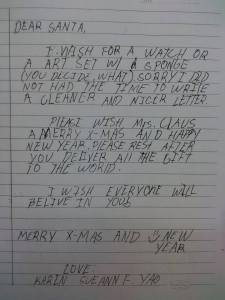 DEAR SANTA,
I WISH FOR A WATCH OR
A ART SET W/ A SPONGE
(YOU DECIDE WHAT) SORRY I DID
NOT HAD THE TIME TO WRITE
A CLEANER AND NICER LETTER.
WISH Mrs. CLAUS
A MERRY X-MAS AND HAPPY
NEW YEAR. PLEASE REST AFTER
YOU DELIVER All THE GIFT
TO THE WORLD.
I WISH EVERYONE WILL
BELIVE IN YOU!
MERRY X-MAS AND NEW
YEAR
LOVE,
KARIN SUEANN F. YAO